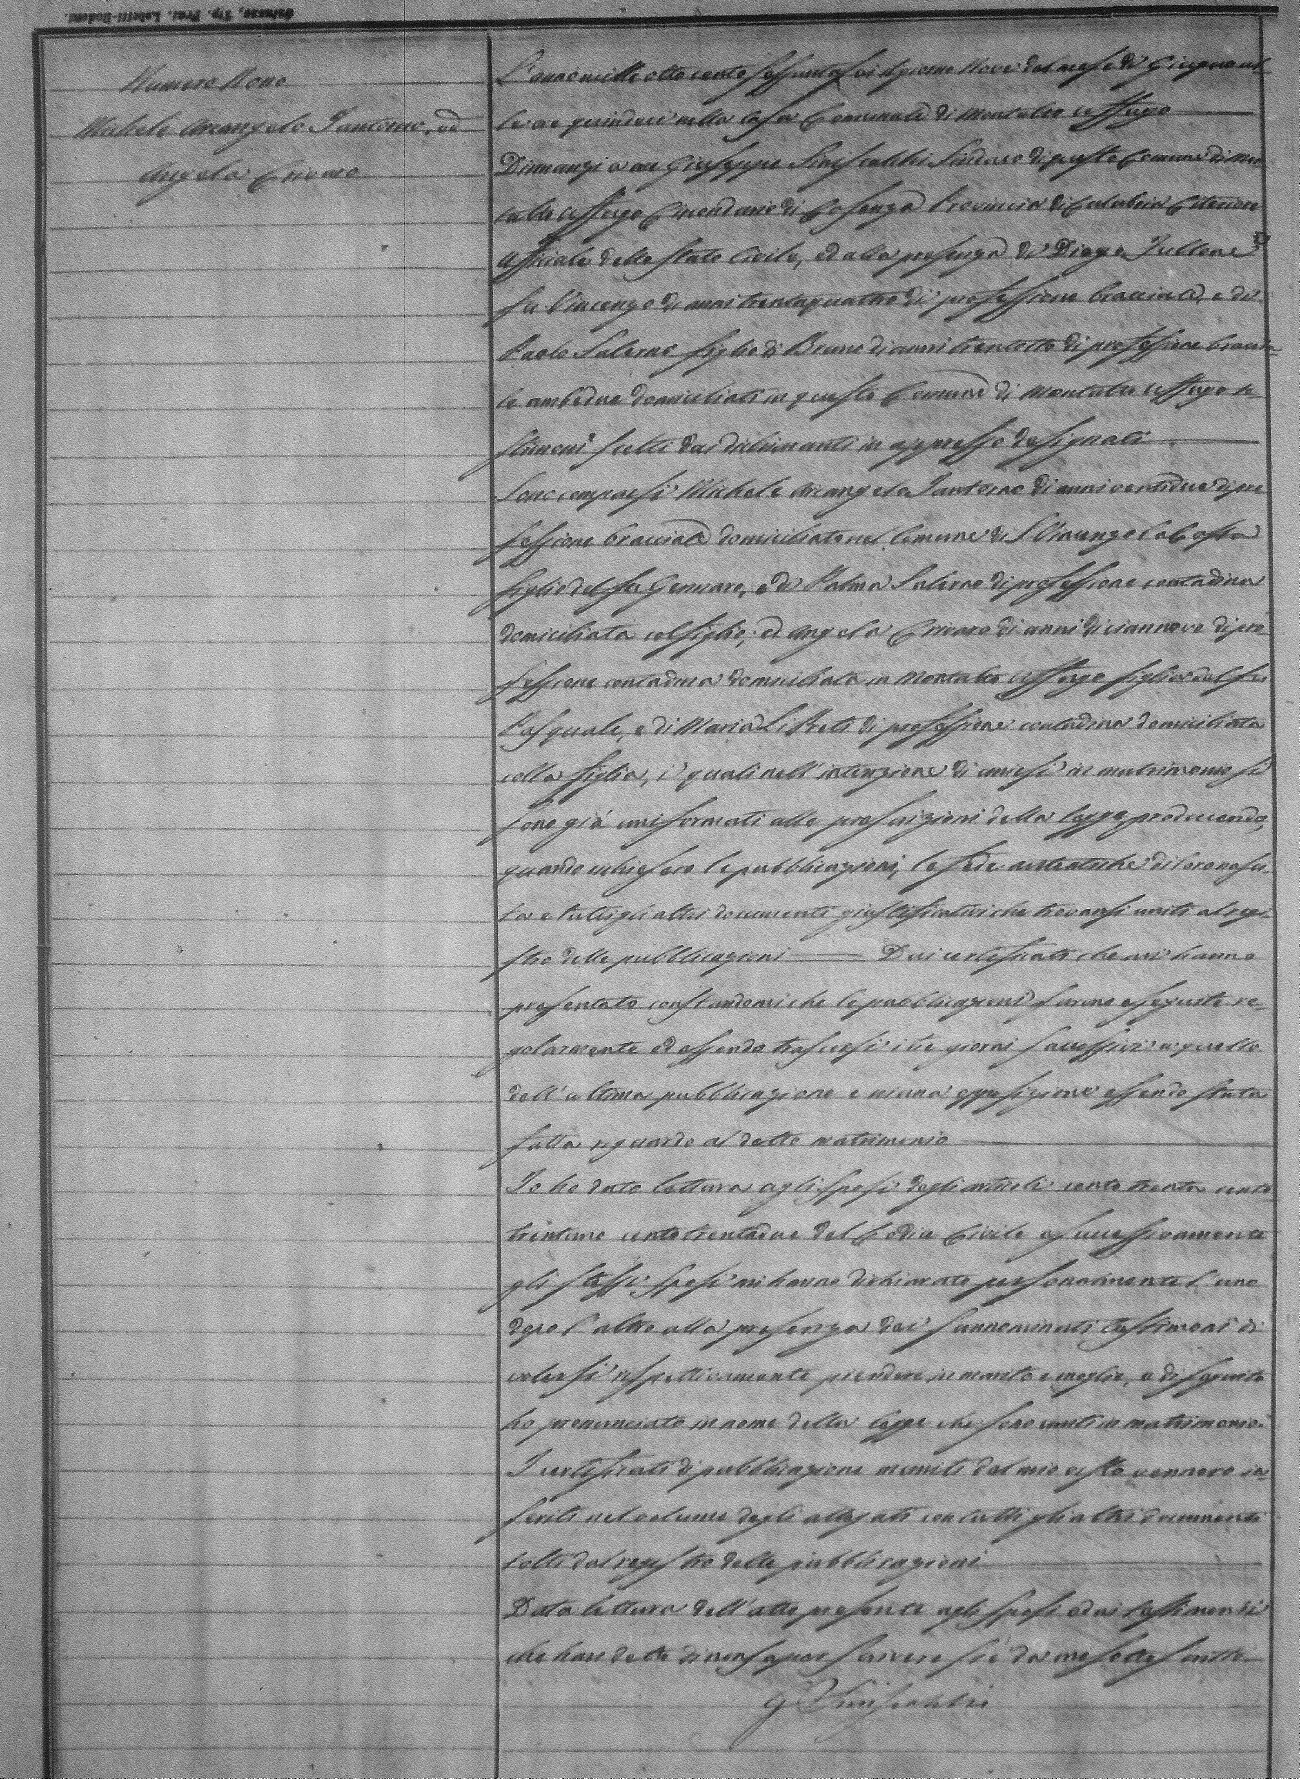 Cosenza, Tip. Prov. Lobetti-Bodoni
Numero Nono
Michele Arcangelo Santoro, ed
Angela Crivaro
L'anno mille otto cento sessantasei il giorno Nove del mese di Giugno al
le ore quindici nella Casa Comunale di Montalto Uffugo
Dinnanzi a me Giuseppe Siniscalchi Sindaco di questo Comune di Mon
talto Uffugo Circondario di Cosenza Provincia di Calabria Citeriore
Uffiziale dello Stato Civile, ed alla presenza di Diego
fu Vincenzo di anni trentaquattro di professione bracciale, e di
Paolo Salerno figlio di Bruno di anni trentotto di professione braccia
le ambedue domiciliati in questo Comune di Montalto Uffugo te
stimoni scelti dai dichiaranti in appresso designati
Sono comparsi Michele Arcangelo Santoro di anni ventidue di pro
fessione bracciale domiciliato nel Comune di S. Vincenzo la Costa
figlio del fu Gennaro, e di Palma Salerno di professione contadina
domiciliata col figlio; ed Angela Crivaro di anni diciannove di pro
fessione contadina domiciliata in Montalto Uffugo figlia del fu
Pasquale, e di Maria di professione contadina domiciliata
colla figlia, i quali nell'intenzione di unirsi in matrimonio si
sono già uniformati alle prescrizioni della legge producendo,
quando chiesero le pubblicazioni, le fedi autentiche di loro nasci
ta e tutti gli altri documenti giustificativi che trovansi uniti al regi
stro delle pubblicazioni Dai certificati che mi hanno
presentato constandomi che le pubblicazioni furono eseguite re
golarmente ed essendo trascorsi i tre giorni successivi a quello
dell'ultima pubblicazione e niuna opposizione essendo stata
fatta riguardo al detto matrimonio
Io ho dato lettura agli sposi degli articoli cento trenta cento
trentuno cento trentadue del Codice Civile e successivamente
gli stessi sposi mi hanno dichiarato personalmente l'uno
dopo l'altro alla presenza dei sunnominati testimoni di
volersi rispettivamente prendere in marito e moglie, e di seguito
ho pronunciato in nome della legge che sono uniti in matrimonio.
I certificati di pubblicazione muniti dal mio visto vennero in
seriti nel volume degli allegati con tutti gli altri documenti
tolti dal registro delle pubblicazioni
Data lettura dell'atto presente agli sposi ed ai testimoni
che han detto di non saper scrivere si è da me sottoscritto
G Siniscalchi